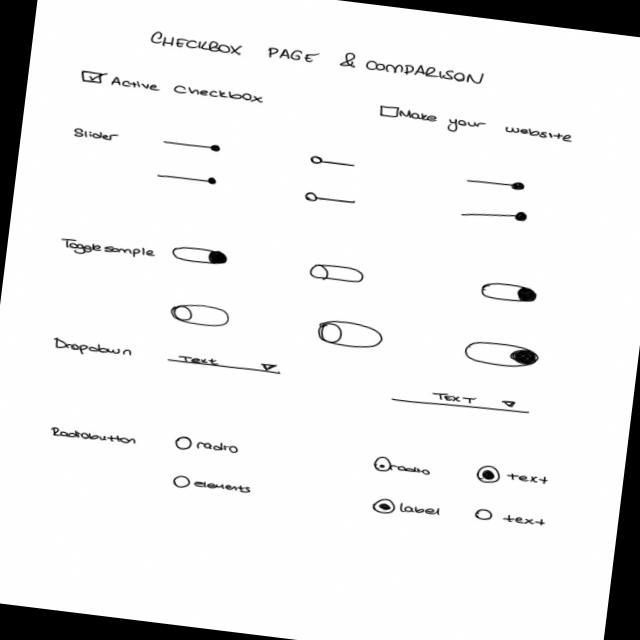 CHECKBOX PAGE & COMPARISON
Active Checkbox
Make your website
Slider
Toggle sample
Dropdown Text
TEXT
Radiobutton radio
radio text
elements
label text